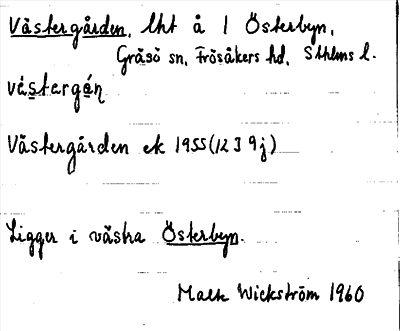 Västergården, lht å 1 Österbyn,
Gräsö sn, Frösåkers hd, Sthlms l.
västergán
Västergården ek 1955 (12 I 9j)
Ligger i västra Österbyn.
Wickström 1960